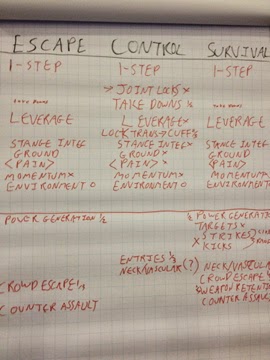 ESCAPE CONTROL SURVIVAL
1-STEP 1-STEP 1-STEP
→ JOINT LOCKS x
TAKE DOWNS TAKE DOWNS x TAKE DOWNS
LEVERAGE LEVERAGE x LEVERAGE
LOCK TRANS→CUFF'S
STANCE INTEG STANCE INTEG x STANCE INTEG
GROUND GROUND x GROUND
<PAIN> <PAIN> x <PAIN>
MOMENTUM x MOMENTUM x MOMENTUM x
ENVIRONMENT O ENVIRONMENT O ENVIRONMENT
POWER GENERATION ½ ½ POWER GENERATION
TARGETS x
STRIKES
x KICKS
ENTRIES ½
NECK/VASCULAR (?) NECK/VASCULAR
CROWD ESCAPE CROWD ESCAPE
WEAPON RETENTION
COUNTER ASSAULT COUNTER ASSAULT